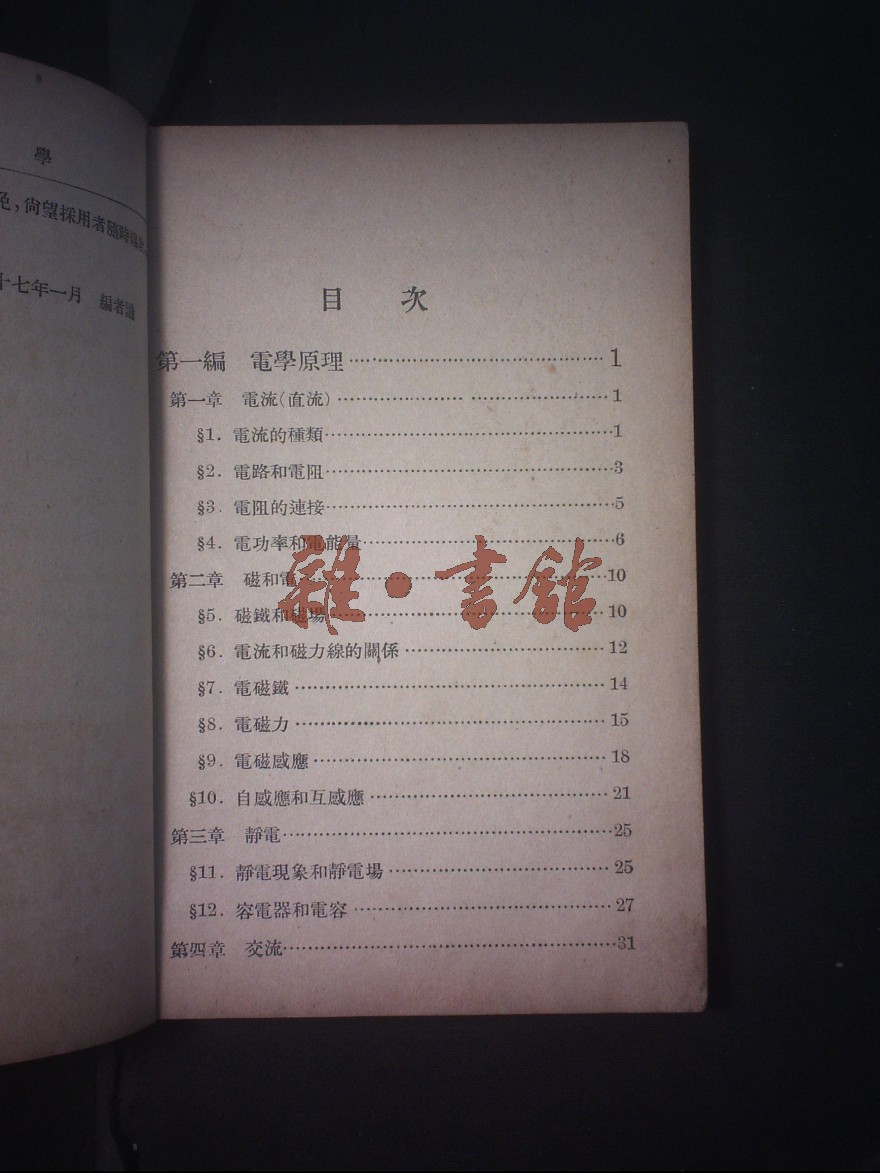 學
色，尙望採用者隨時
十七年一月　編者識
目　次
第一編　電學原理……1
第一章　電流(直流)……1
§1．電流的種類……1
§2．電路和電阻……3
§3．電阻的連接……5
§4．電功率和電能量……6
第二章　磁和電……10
§5．磁鐵和磁場……10
§6．電流和磁力線的關係……12
§7．電磁鐵……14
§8．電磁力……15
§9．電磁感應……18
§10．自感應和互感應……21
第三章　靜電……25
§11．靜電現象和靜電場……25
§12．容電器和電容……27
第四章　交流……31
雜·書館